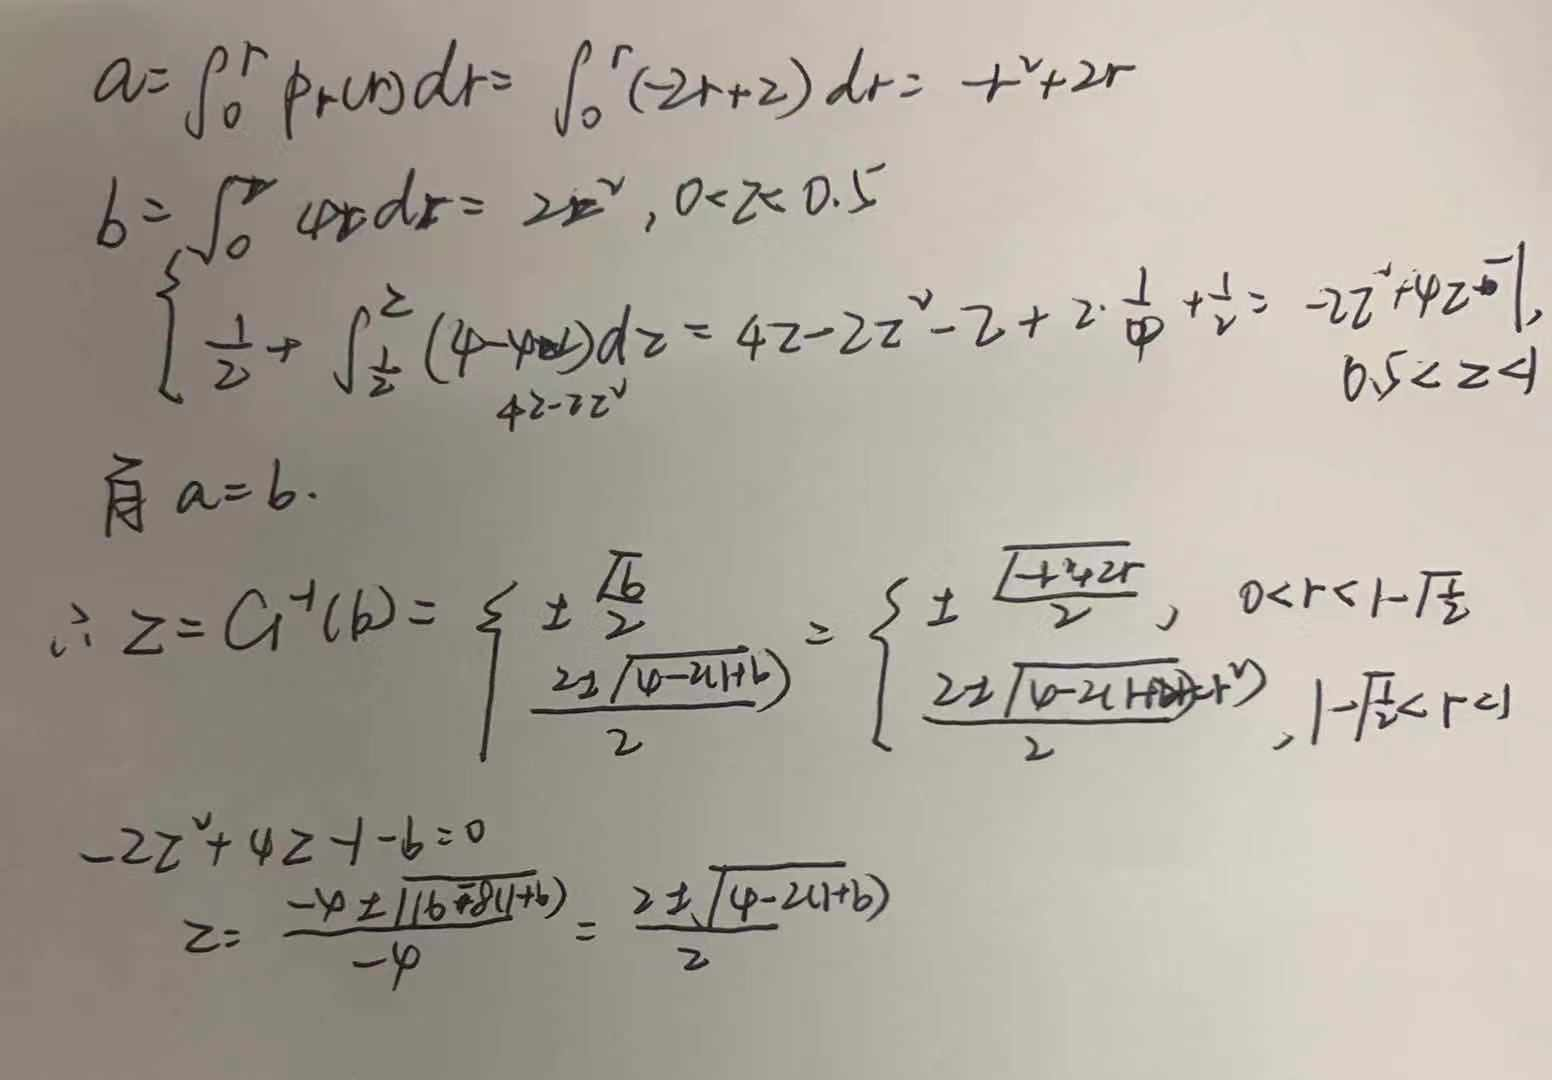 a = ∫₀ʳ pᵣ(r)dr = ∫₀ʳ (-2r+2) dr = -r²+2r
b = ∫₀ᶻ 4z dz = 2z² , 0<z<0.5
{ 1/2 + ∫_{1/2}^z (4-4z)dz = 4z-2z²-2+2·1/4+1/2 = -2z²+4z-1,
4z-2z² 0.5<z<1
有 a=b.
∴ z = G⁻¹(b) = { ± √b/2 = { ± √(-r²+2r)/2 , 0<r<1-√(1/2)
(2±√(4-2(1+b)))/2 , 1-√(1/2)<r<1
-2z²+4z-1-b=0
z = (-4±√(16-8(1+b)))/-4 = (2±√(4-2(1+b)))/2